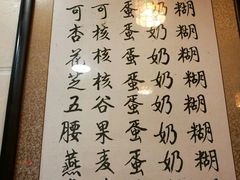 可可蛋奶糊
杏核蛋奶糊
花核蛋奶糊
芝核蛋奶糊
五谷蛋奶糊
腰果蛋奶糊
燕麦蛋奶糊